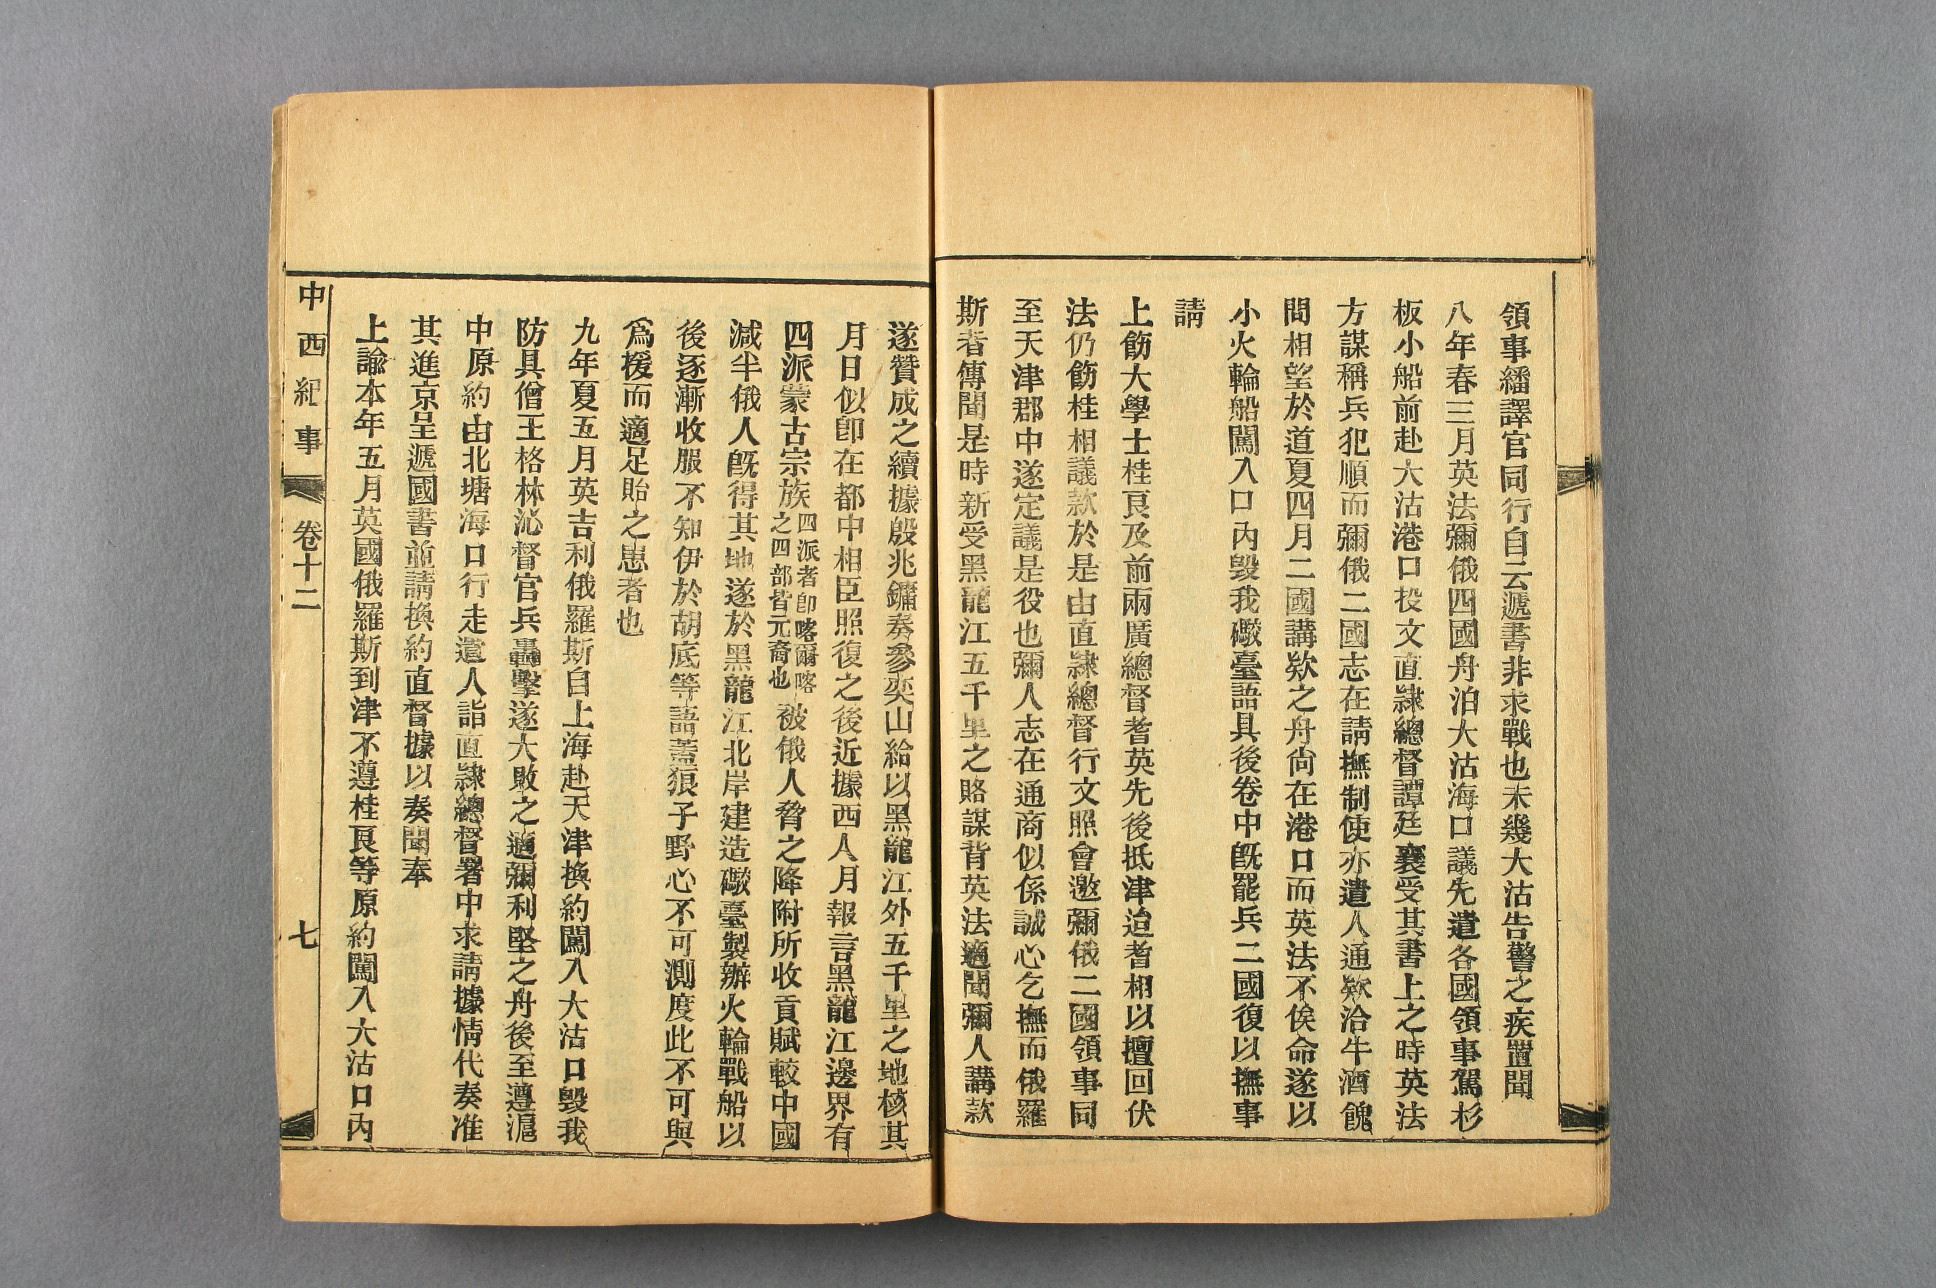 領事繙譯官同行自云遞書非求戰也未幾大沽告警之疾置聞
八年春三月英法彌俄四國舟泊大沽海口議先遣各國領事駕杉
板小船前赴大沽港口投文直隸總督譚廷襄受其書上之時英法
方謀稱兵犯順而彌俄二國志在請撫制使亦遣人通欵洽牛酒餽
問相望於道夏四月二國講欵之舟尙在港口而英法不俟命遂以
小火輪船闖入口內毀我礮臺語具後卷中旣罷兵二國復以撫事
請
上飭大學士桂良及前兩廣總督耆英先後抵津迨耆相以擅回伏
法仍飭桂相議款於是由直隸總督行文照會邀彌俄二國領事同
至天津郡中遂定議是役也彌人志在通商似係誠心乞撫而俄羅
斯者傳聞是時新受黑龍江五千里之賂謀背英法適聞彌人講款
遂贊成之續據殷兆鏞奏參奕山給以黑龍江外五千里之地核其
月日似卽在都中相臣照復之後近據西人月報言黑龍江邊界有
四派蒙古宗族四派者卽喀爾喀之四部皆元裔也被俄人脅之降附所收貢賦較中國
減半俄人旣得其地遂於黑龍江北岸建造礮臺製辦火輪戰船以
後逐漸收服不知伊於胡底等語蓋狼子野心不可測度此不可與
爲援而適足貽之患者也
九年夏五月英吉利俄羅斯自上海赴天津換約闖入大沽口毀我
防具僧王格林沁督官兵轟擊遂大敗之適彌利堅之舟後至遵滬
中原約由北塘海口行走遣人詣直隸總督署中求請據情代奏准
其進京呈遞國書並請換約直督據以奏聞奉
上諭本年五月英國俄羅斯到津不遵桂良等原約闖入大沽口內
中西紀事 卷十二 七